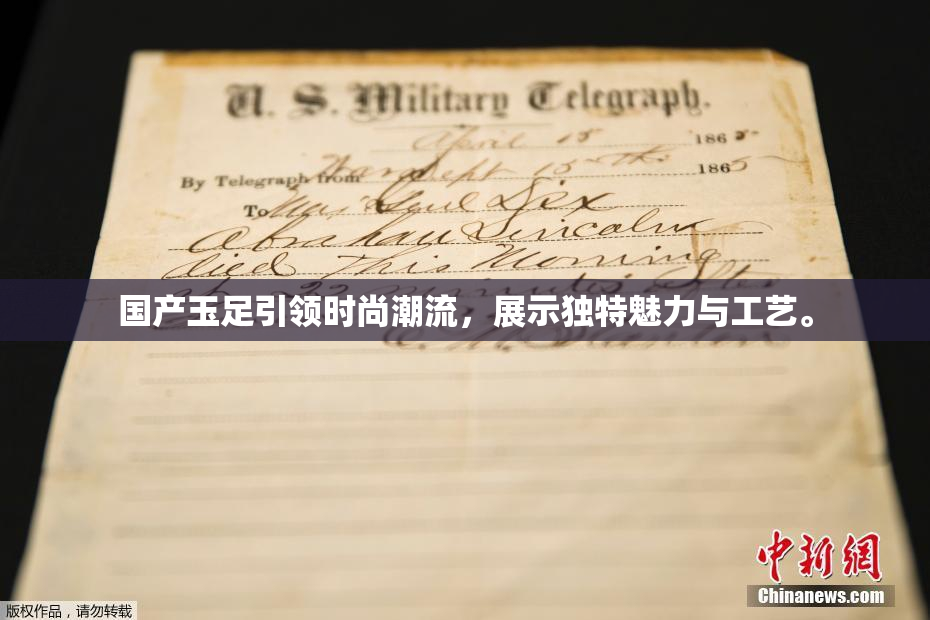 U. S. Military Telegraph.
April 15 1865
By Telegraph from War Dept 15th 1865
To Maj Genl Dix
Abraham Lincoln
died This Morning
at 22 minutes after
国产玉足引领时尚潮流，展示独特魅力与工艺。
E. M. Stanton
中新網
Chinanews.com
版权作品，请勿转载